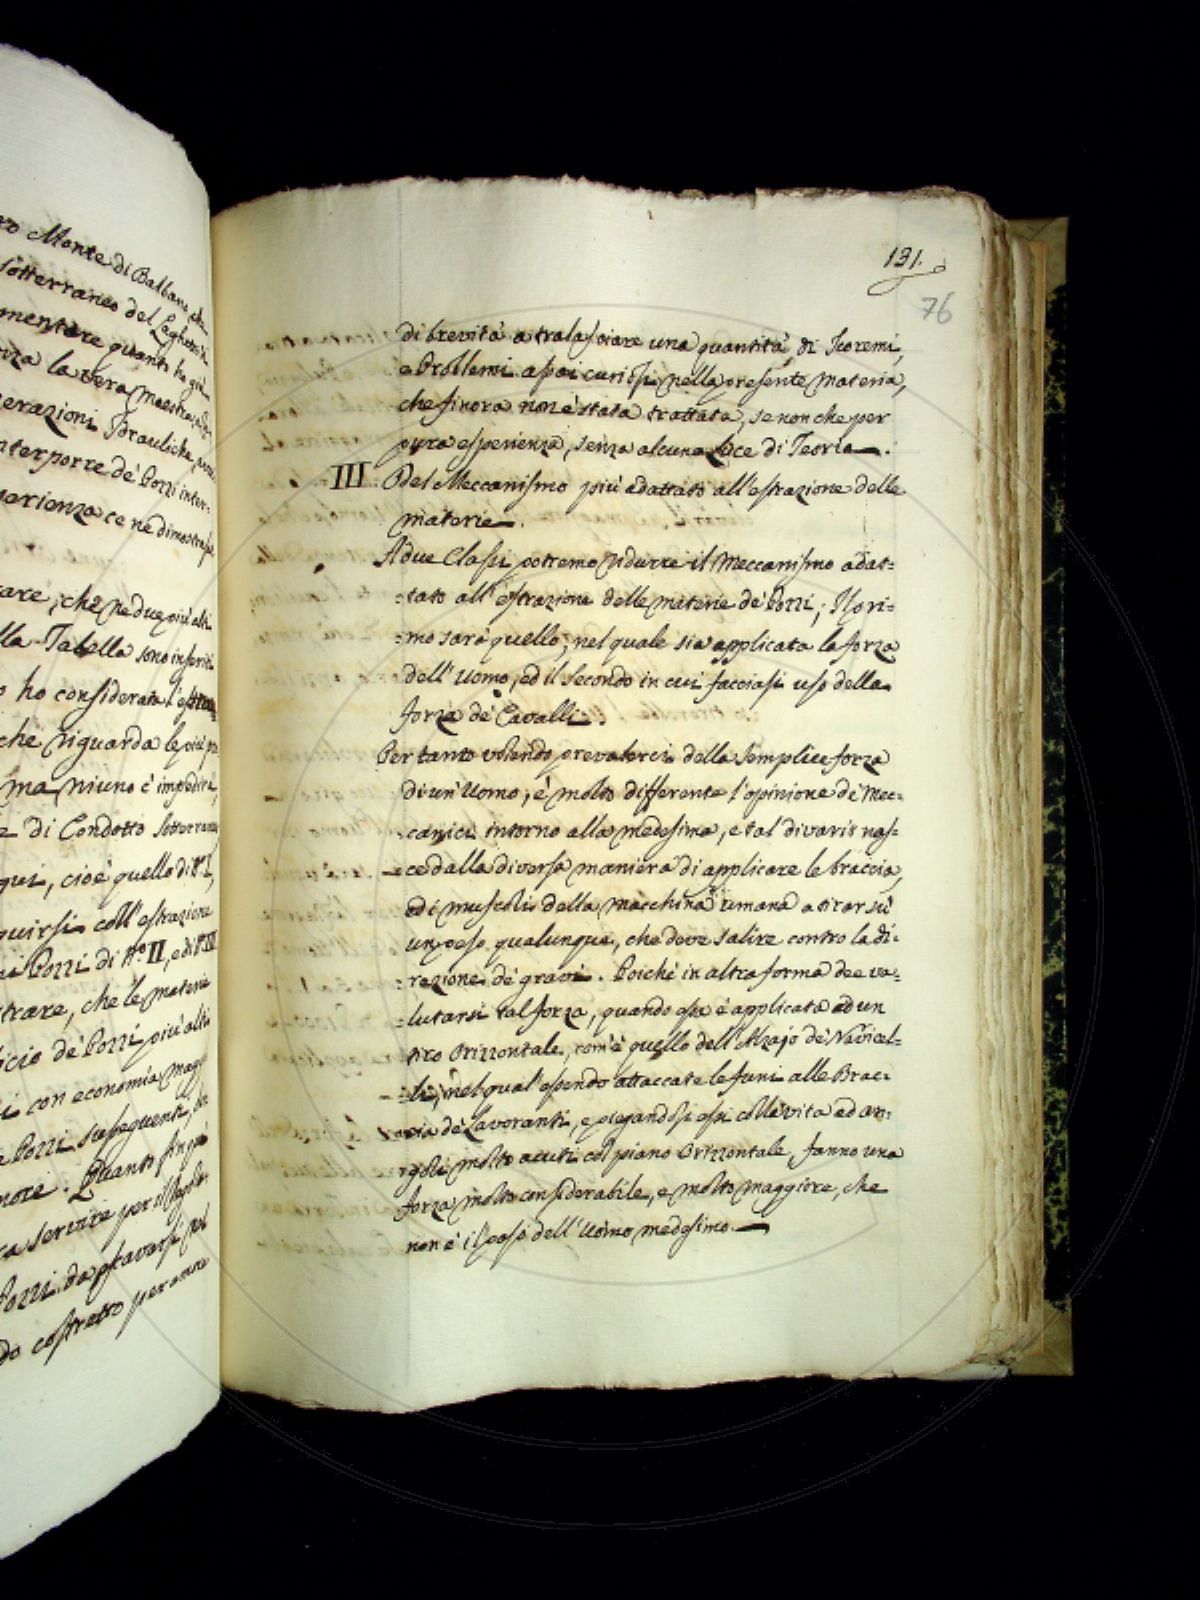 ro Monte di Balbano, che
sotterraneo del Laghetto di
mentare quanto ho già
nza la vera maestra, ado
erazioni Idrauliche, avva
nterporre de' Pozzi inter=
perienza ce ne dimostrasse
tare, che ne due più alti
lla Tabella sono inseriti
o ho considerata l'estraz
che riguarda le più pr
ma niuno è impedire,
e di Condotto Sotterran
qui, cioè quello di N.º I,
guirsi coll'estrazione
ei Pozzi di N.º II, e di N.º III
trare, che le materie
icio de' Pozzi più alti
i con economia, magg
e Pozzi susseguenti,
nore. Quanto fin più
ra servire per il
Pozzi da scavarsi nel
do costretto per amore
131.
76
di brevità a tralasciare una quantità di Teoremi,
e Problemi assai curiosi nella presente materia,
che finora non è stata trattata, se non che per
pura esperienza, senza alcuna Luce di Teoria.
III. Del Meccanismo più adattato all'estrazione delle
materie.
A due Classi potremo ridurre il Meccanismo adat=
=tato all'estrazione delle materie de' Pozzi; Il pri=
=mo sarà quello, nel quale sia applicata la forza
dell'Uomo, ed il Secondo in cui facciasi uso della
forza de' Cavalli.
Per tanto volendo prevalerci della semplice forza
di un'Uomo, è molto differente l'opinione de' Mec=
=canici intorno alla medesima, e tal divario nas=
=ce dalla diversa maniera di applicare le braccia,
ed i muscoli della macchina umana a tirar su'
un peso qualunque, che deve salire contro la di=
=rezione de' gravi. Poichè in altra forma dee va=
=lutarsi tal forza, quando essa è applicata ad un
tiro Orizzontale, com'è quello dell'Alzajo de' Navicel=
=li, nel qual'essendo attaccate le funi alle Brac=
=cia de' Lavoranti, e piegandosi essi colla vita ad an=
=goli molto acuti col piano Orizzontale, fanno una
forza molto considerabile, e molto maggiore, che
non è il peso dell'Uomo medesimo.